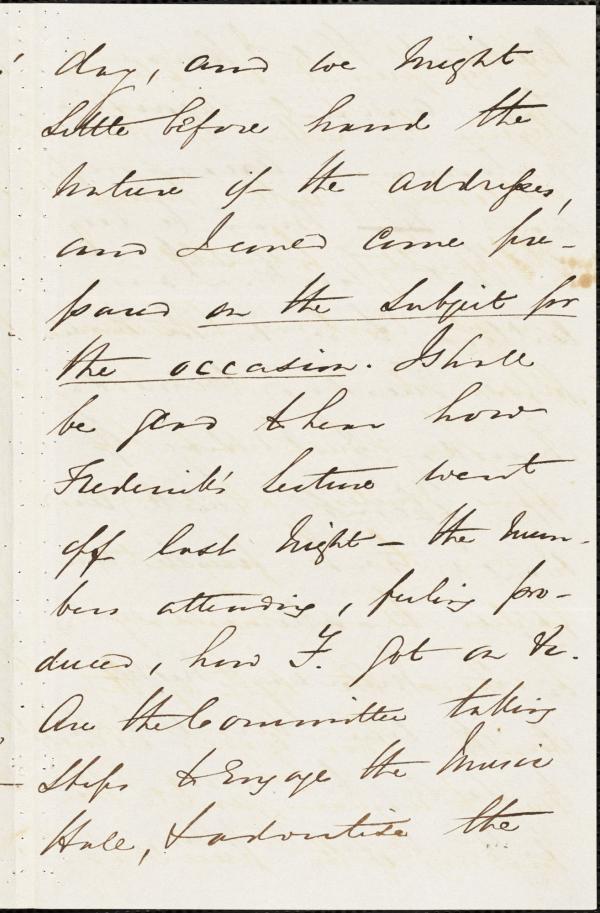 day, and we might
settle before hand the
nature of the addresses,
and I could come pre-
pared on the subject for
the occasion. I shall
be glad to hear how
Frederick's lecture went
off last night — the num-
bers attending, feeling pro-
duced, how F. got on &c.
Are the Committee taking
steps to engage the Music
Hall, & advertise the